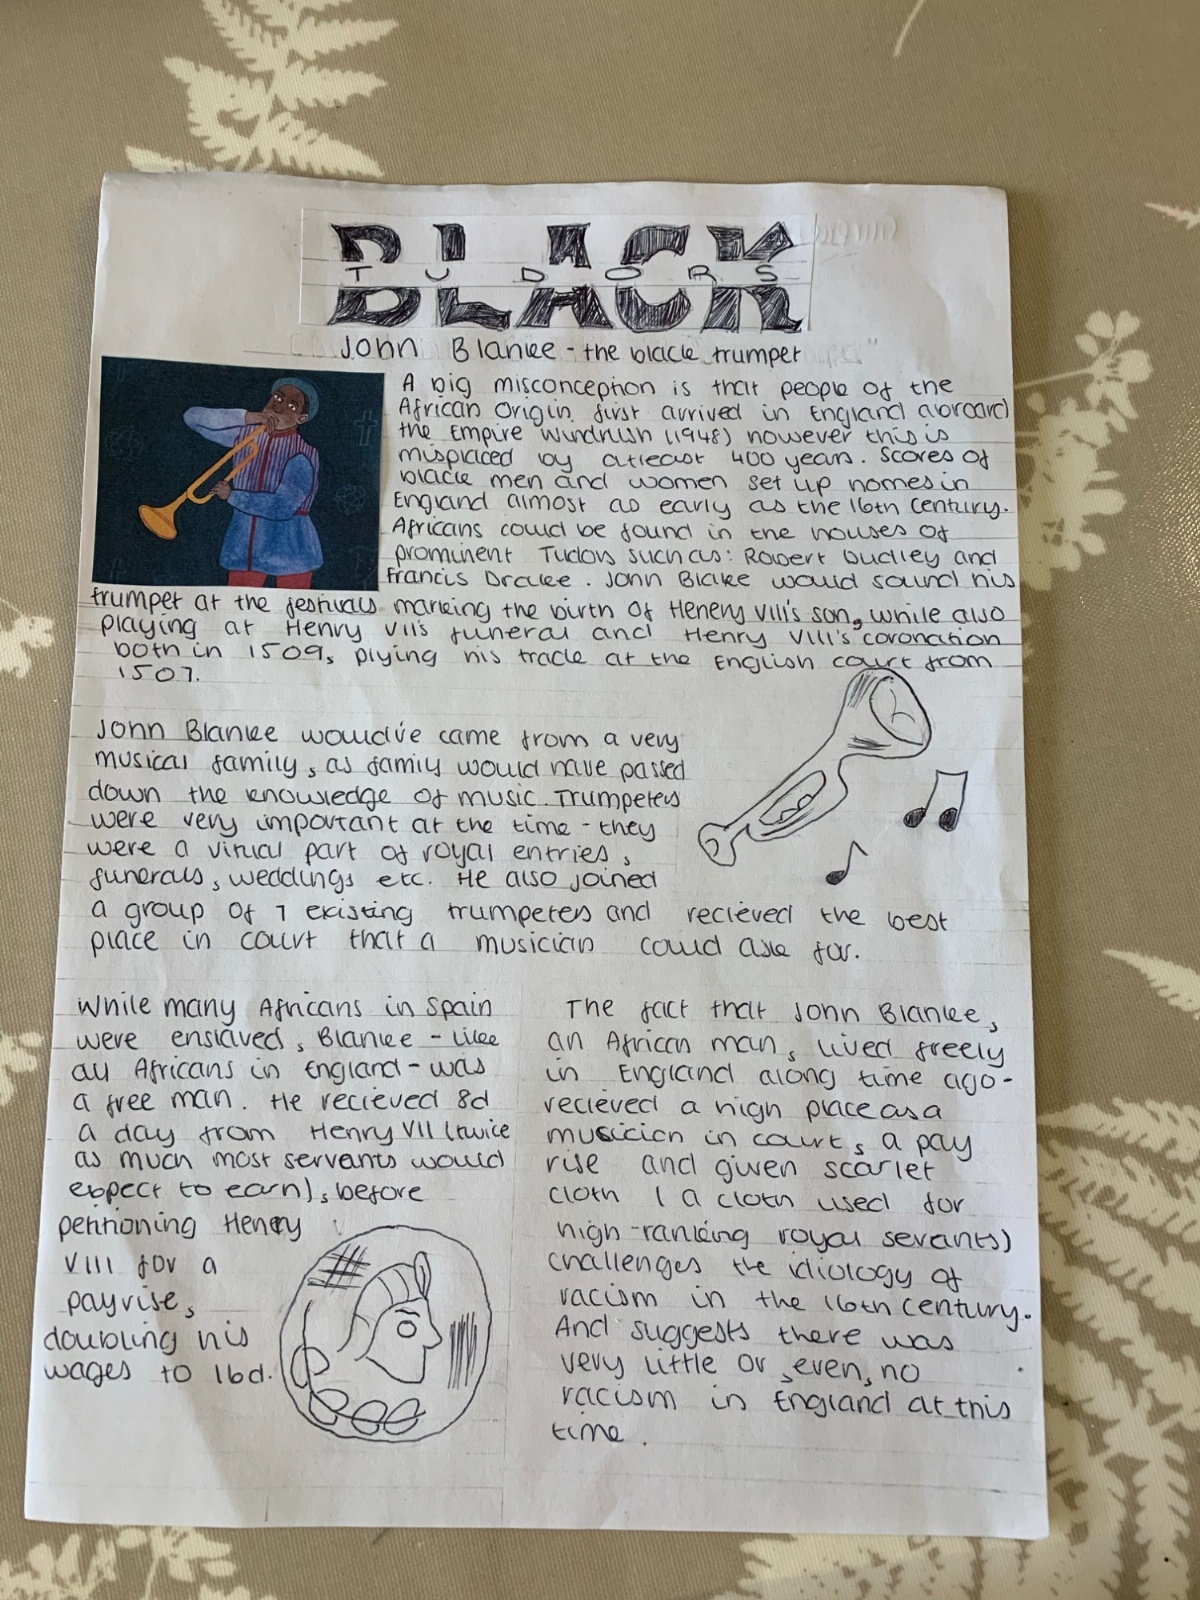 BLACK
TUDORS
John Blanke - the black trumpet
A big misconception is that people of the
African Origin first arrived in England abroard
the Empire Windrush (1948) however this is
misplaced by atleast 400 years. Scores of
black men and women set up homes in
England almost as early as the 16th Century.
Africans could be found in the houses of
prominent Tudors such as: Robert Dudley and
Francis Drake. John Blake would sound his
trumpet at the festivals marking the birth of Henery VIII's son, while also
playing at Henry VII's funeral and Henry VIII's coronation
both in 1509, plying his trade at the English court from
1507.
John Blanke would've came from a very
musical family, as family would have passed
down the knowledge of music. Trumpeters
were very important at the time - they
were a virtual part of royal entries,
funerals, weddings etc. He also joined
a group of 7 existing trumpeters and recieved the best
place in court that a musician could ask for.
While many Africans in Spain
were enslaved, Blanke - like
all Africans in England - was
a free man. He recieved 8d
a day from Henry VII (twice
as much most servants would
expect to earn), before
petitioning Henry
VIII for a
payrise,
doubling his
wages to 16d.
The fact that John Blanke,
an African man, lived freely
in England along time ago -
recieved a high place as a
musician in court, a pay
rise and given scarlet
cloth (a cloth used for
high-ranking royal servants)
challenges the idiology of
racism in the 16th Century.
And suggests there was
very little or, even, no
racism in England at this
time.